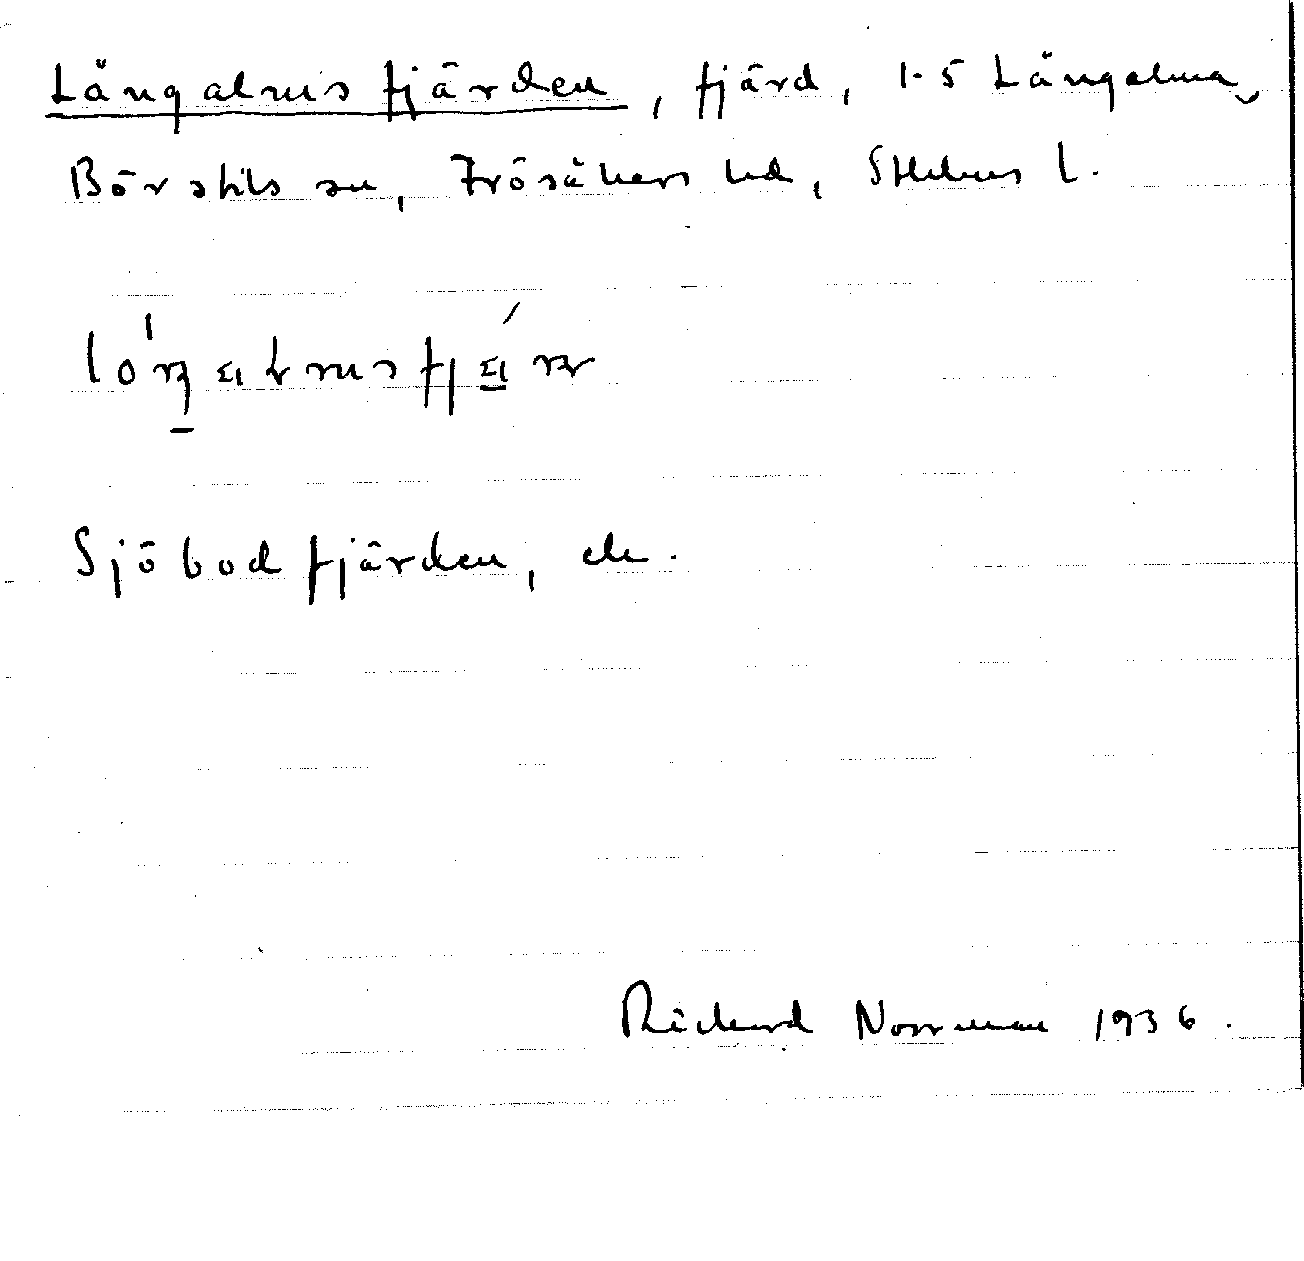 Långalmsfjärden, fjärd, 1-5 Långalma,
Börstils sn, Frösåkers hd, Sthlms l.
Sjöbodfjärden, de.
Rickard Norrman 1936.